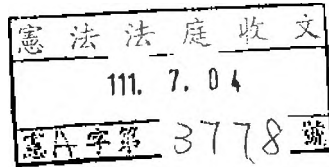 憲法法庭收文
111. 7. 04
憲A字第 3778 號